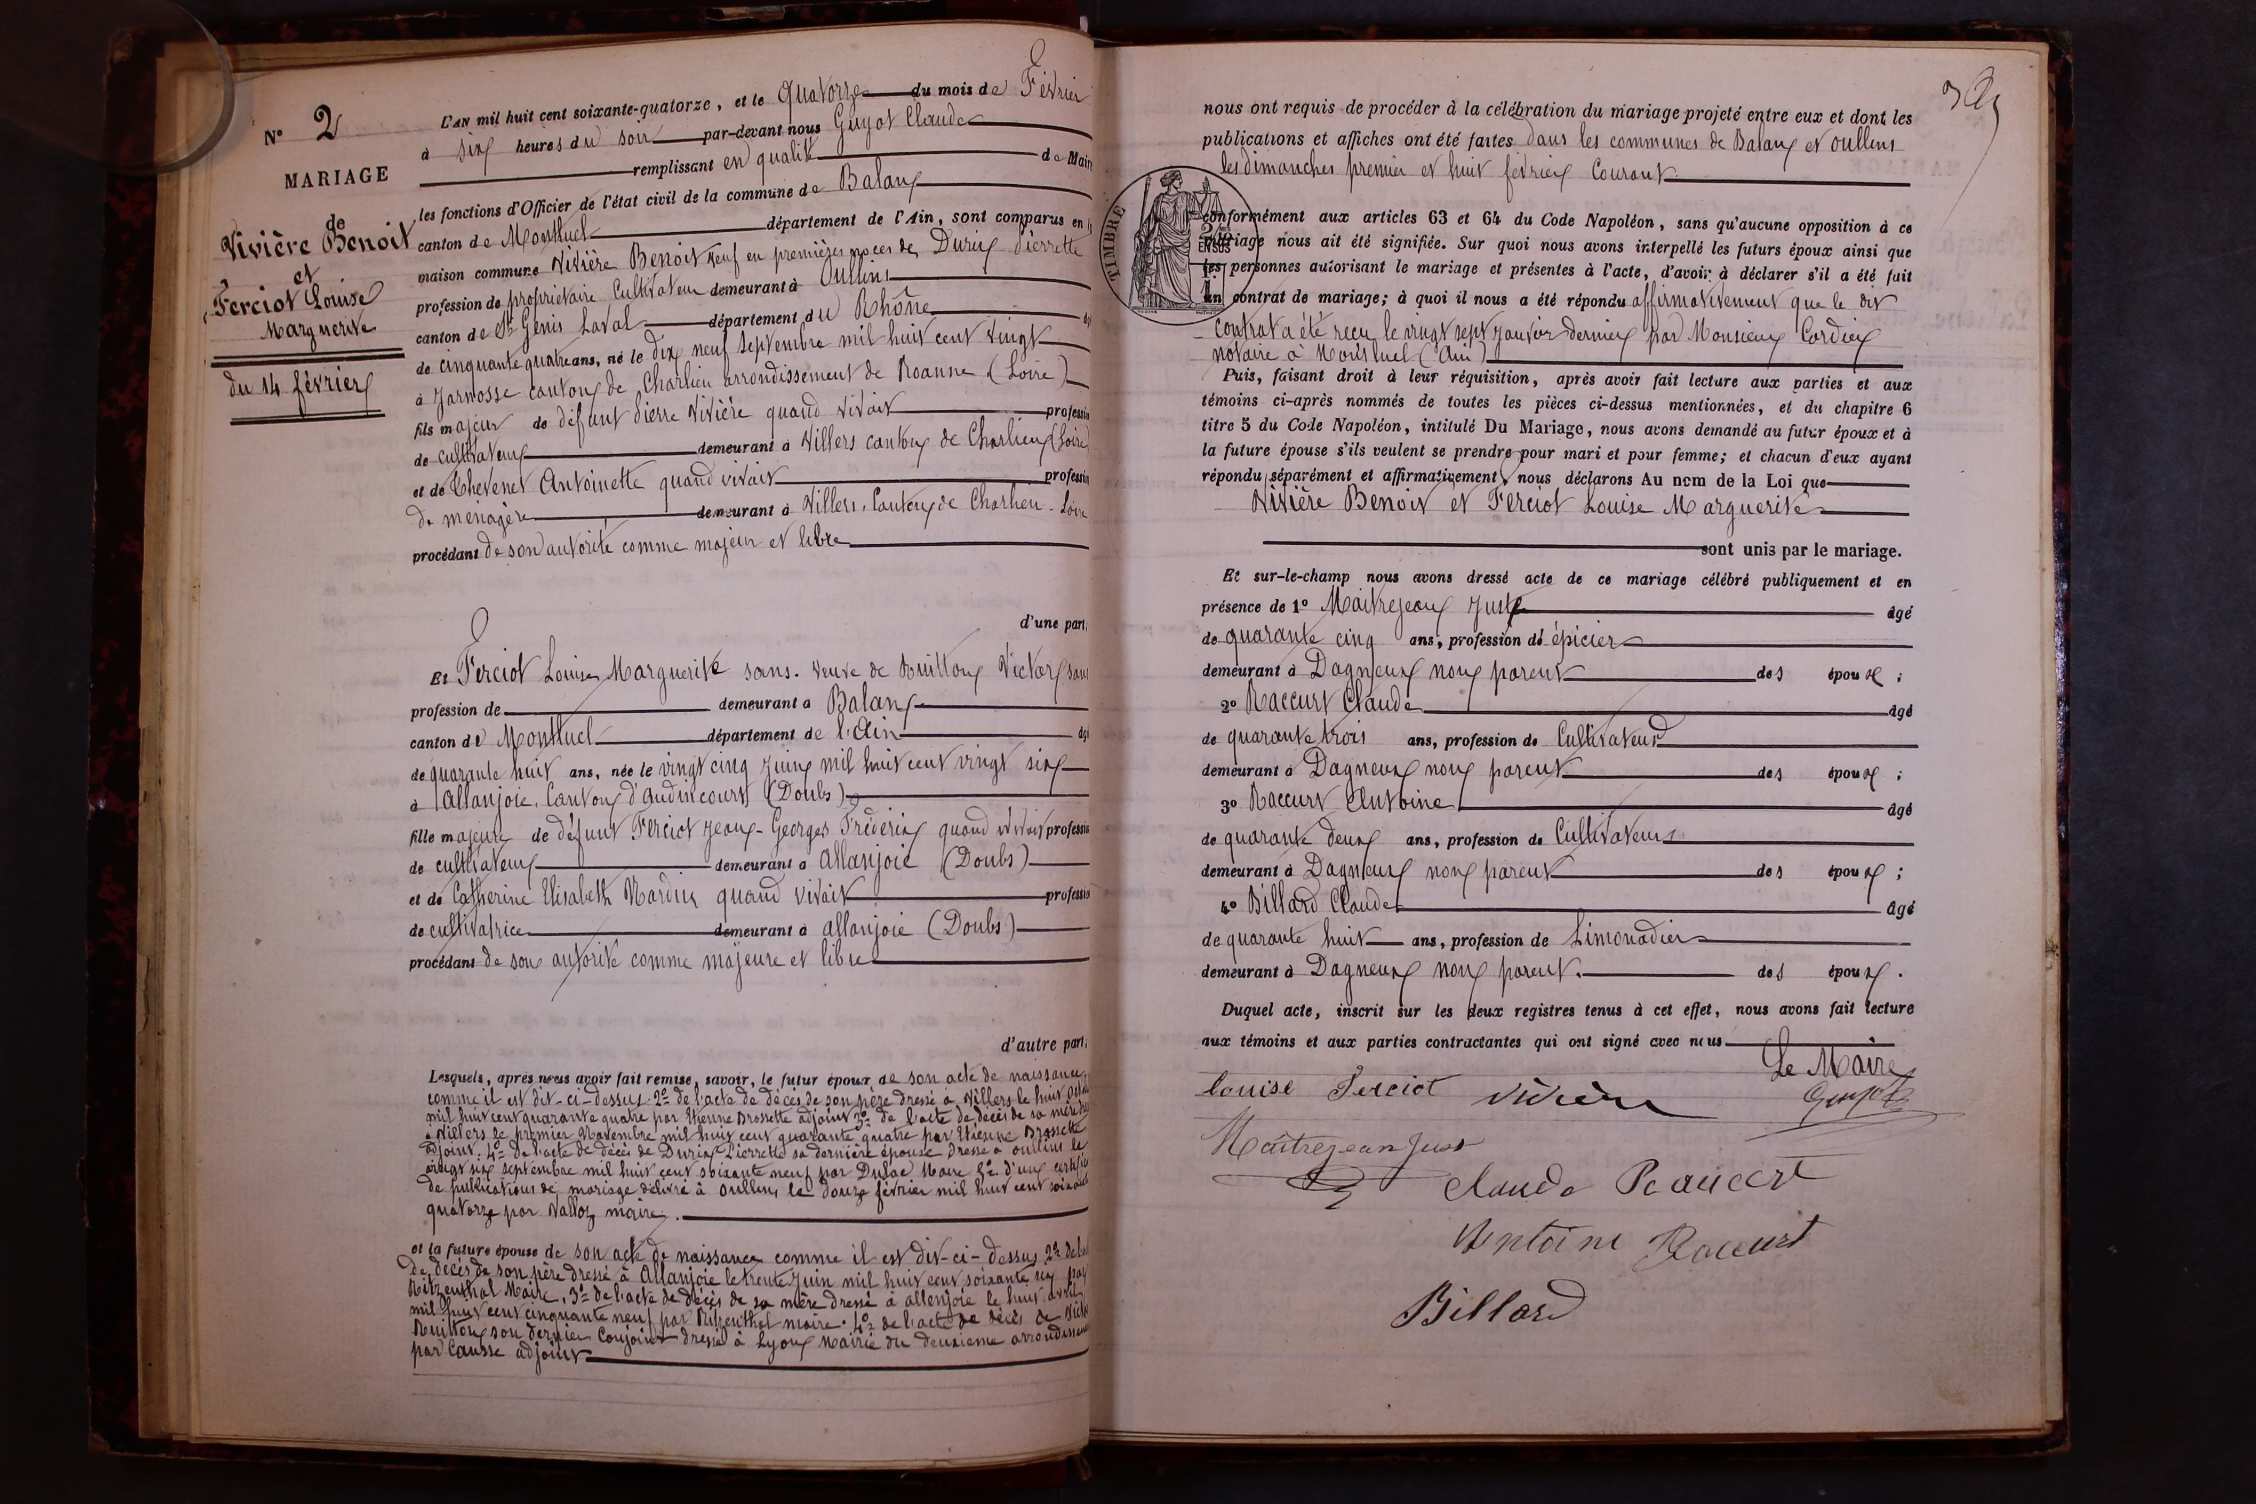 N° 2
MARIAGE
de
Vivière Benoit
et
Ferciot Louise
Marguerite
du 14 février
L'AN mil huit cent soixante-quatorze, et le Quatorze du mois de Février
à six heures du soir par-devant nous Guyot Claude
remplissant en qualité de Maire
les fonctions d'Officier de l'état civil de la commune de Balan
canton de Montluel département de l'Ain, sont comparus en la
maison commune Vivière Benoit veuf en premières noces de Durix Pierrette
profession de propriétaire Cultivateur demeurant à Oullins
canton de St Genis Laval département du Rhône âgé
de cinquante quatre ans, né le dix neuf Septembre mil huit cent vingt
à Jarnosse canton de Charlieu arrondissement de Roanne (Loire)
fils majeur de défunt Pierre Vivière quand vivait profession
de cultivateur demeurant à Villers canton de Charlieu (Loire)
et de Chevenet Antoinette quand vivait profession
de ménagère demeurant à Villers, Canton de Charlieu - Loire
procédant de son autorité comme majeur et libre
d'une part,
Et Ferciot Louise Marguerite sans. veuve de Ruitton Victor sans
profession de demeurant à Balan
canton de Montluel département de l'Ain âgé
de quarante huit ans, née le vingt cinq Juin mil huit cent vingt six
à Allanjoie, Canton d'Audincourt (Doubs)
fille majeure de défunt Ferciot Jean-Georges Fréderic quand vivait profession
de cultivateur demeurant à Allanjoie (Doubs)
et de Catherine Elisabeth Nardin quand vivait profession
de cultivatrice demeurant à allanjoie (Doubs)
procédant de son autorité comme majeure et libre
d'autre part,
Lesquels, après nous avoir fait remise, savoir, le futur époux de son acte de naissance
comme il est dit-ci-dessus 2° de l'acte de décès de son père dressé à Villers le huit
mil huit cent quarante quatre par Etienne Brossette adjoint 3° de l'acte de décès de sa mère
à Villers le premier Novembre mil huit cent quarante quatre par Etienne Brossette
adjoint. 4° de l'acte de décès de Durix Pierrette sa dernière épouse dressé à oullins le
vingt six septembre mil huit cent soixante neuf par Dulac Maire 5° d'un certificat
de publications de mariage délivré à oullins le douze février mil huit cent soixante
quatorze par Valloz maire.
et la future épouse de son acte de naissance comme il est dit-ci-dessus 2° de l'acte
de décès de son père dressé à Allanjoie le trente Juin mil huit cent soixante six par
Ritzenthal Maire, 3° de l'acte de décès de sa mère dressé à allenjoie le huit avril
mil huit cent cinquante neuf par Ritzenthal maire. 4° de l'acte de décès de Victor
Ruitton son dernier Conjoint dressé à Lyon Mairie du deuxième arrondissement
par Causse adjoint
nous ont requis de procéder à la célébration du mariage projeté entre eux et dont les
publications et affiches ont été faites dans les communes de Balan et oullins
les dimanches premier et huit février Courant
TIMBRE
2/10 EN SUS
conformément aux articles 63 et 64 du Code Napoléon, sans qu'aucune opposition à ce
mariage nous ait été signifiée. Sur quoi nous avons interpellé les futurs époux ainsi que
les personnes autorisant le mariage et présentes à l'acte, d'avoir à déclarer s'il a été fait
un contrat de mariage; à quoi il nous a été répondu affirmativement que le dit
contrat a été reçu le vingt sept Janvier dernier par Monsieur Cordier
notaire à Montluel (Ain)
Puis, faisant droit à leur réquisition, après avoir fait lecture aux parties et aux
témoins ci-après nommés de toutes les pièces ci-dessus mentionnées, et du chapitre 6
titre 5 du Code Napoléon, intitulé Du Mariage, nous avons demandé au futur époux et à
la future épouse s'ils veulent se prendre pour mari et pour femme; et chacun d'eux ayant
répondu séparément et affirmativement, nous déclarons Au nom de la Loi que
Vivière Benoit et Ferciot Louise Marguerite
sont unis par le mariage.
Et sur-le-champ nous avons dressé acte de ce mariage célébré publiquement et en
présence de 1° Maitrejean Just âgé
de quarante cinq ans, profession de épicier
demeurant à Dagneux non parent des époux ;
2° Raccurt Claude âgé
de quarante trois ans, profession de Cultivateur
demeurant à Dagneux non parent des époux ;
3° Raccurt Antoine âgé
de quarante deux ans, profession de Cultivateur
demeurant à Dagneux non parent des époux ;
4° Billard Claude âgé
de quarante huit ans, profession de Limonadier
demeurant à Dagneux non parent. des époux.
Duquel acte, inscrit sur les deux registres tenus à cet effet, nous avons fait lecture
aux témoins et aux parties contractantes qui ont signé avec nous
Le Maire
louise Ferciot Vivière Guyot
Maitrejean Just
Claude Raccurt
Antoine Raccurt
Billard